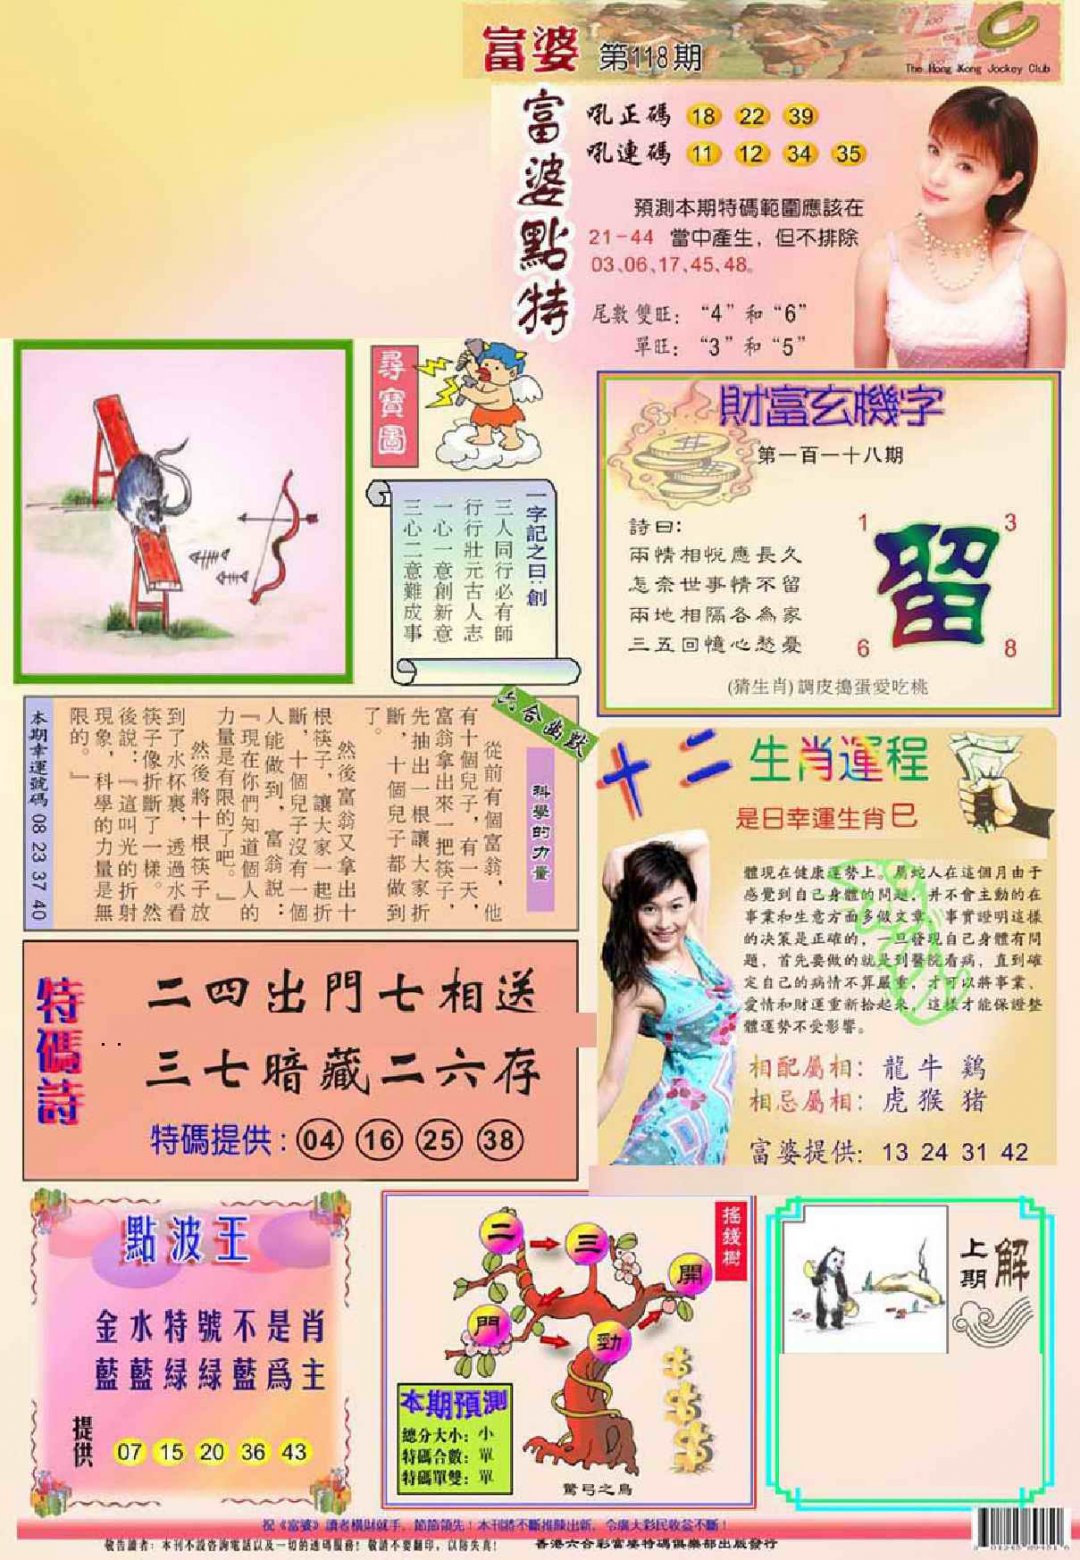 富婆 第118期
The Hong Kong Jockey Club
富婆點特
吼正碼 18 22 39
吼連碼 11 12 34 35
預測本期特碼範圍應該在
21-44 當中產生，但不排除
03、06、17、45、48。
尾數雙旺：“4”和“6”
單旺：“3”和“5”
尋寶圖
一字記之曰：創
三人同行必有師
行行壯元古人志
一心一意創新意
三心二意難成事
財富玄機字
第一百一十八期
詩曰：
兩情相悅應長久
怎奈世事情不留
兩地相隔各為家
三五回憶心愁憂
1 3
留
6 8
(猜生肖)調皮搗蛋愛吃桃
六合幽默
科學的力量
從前有個富翁，他
有十個兒子，有一天，
富翁拿出來一把筷子，
先抽出一根讓大家折
斷，十個兒子都做到
了。
然後富翁又拿出十
根筷子，讓大家一起折
斷，十個兒子沒有一個
人能做到，富翁說：
『現在你們知道個人的
力量是有限的了吧。』
然後將十根筷子放
到了水杯裏，透過水看
筷子像折斷了一樣。然
後說：『這叫光的折射
現象，科學的力量是無
限的。』
本期幸運號碼 08 23 37 40
十二生肖運程
是日幸運生肖巳
體現在健康運勢上。屬蛇人在這個月由于
感覺到自己身體的問題，并不會主動的在
事業和生意方面多做文章。事實證明這樣
的决策是正確的，一旦發現自己身體有問
題，首先要做的就是到醫院看病，直到確
定自己的病情不算嚴重，才可以將事業、
愛情和財運重新拾起來，這樣才能保證整
體運勢不受影響。
相配屬相：龍 牛 鷄
相忌屬相：虎 猴 猪
富婆提供：13 24 31 42
特碼詩
二四出門七相送
三七暗藏二六存
特碼提供：04 16 25 38
點波王
金水特號不是肖
藍藍綠綠藍爲主
提供 07 15 20 36 43
搖錢樹
二 三 開
門 勁
本期預測
總分大小：小
特碼合數：單
特碼單雙：單
驚弓之鳥
上期解
祝《富婆》讀者橫財就手，節節領先！本刊將不斷推陳出新，令廣大彩民收益不斷！
敬告讀者：本刊不設咨詢電話以及一切的透碼服務！敬請不要翻印，以防失真！
香港六合彩富婆特碼俱樂部出版發行